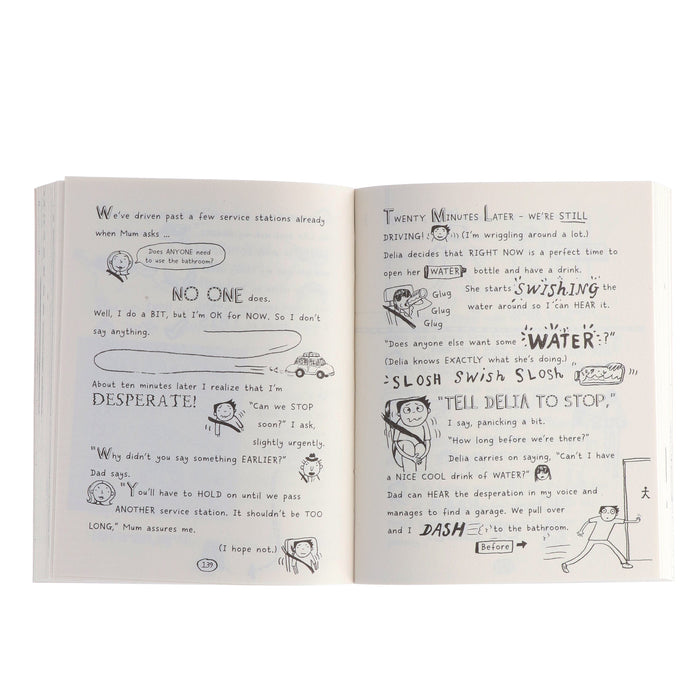 We've driven past a few service stations already
when Mum asks ...
Does ANYONE need
to use the bathroom?
NO ONE does.
Well, I do a BIT, but I'm OK for NOW. So I don't
say anything.
About ten minutes later I realize that I'm
DESPERATE!
"Can we STOP
soon?" I ask,
slightly urgently.
"Why didn't you say something EARLIER?"
Dad says.
"You'll have to HOLD on until we pass
ANOTHER service station. It shouldn't be TOO
LONG," Mum assures me.
(I hope not.)
139
TWENTY MINUTES LATER - WE'RE STILL
DRIVING! (I'm wriggling around a lot.)
Delia decides that RIGHT NOW is a perfect time to
open her WATER bottle and have a drink.
Glug
Glug
Glug
She starts SWISHING the
water around so I can HEAR it.
"Does anyone else want some WATER?"
(Delia knows EXACTLY what she's doing.)
SLOSH SWISH SLOSH
"TELL DELIA TO STOP,"
I say, panicking a bit.
"How long before we're there?"
Delia carries on saying, "Can't I have
a NICE COOL drink of WATER?"
Dad can HEAR the desperation in my voice and
manages to find a garage. We pull over
and I DASH to the bathroom.
Before